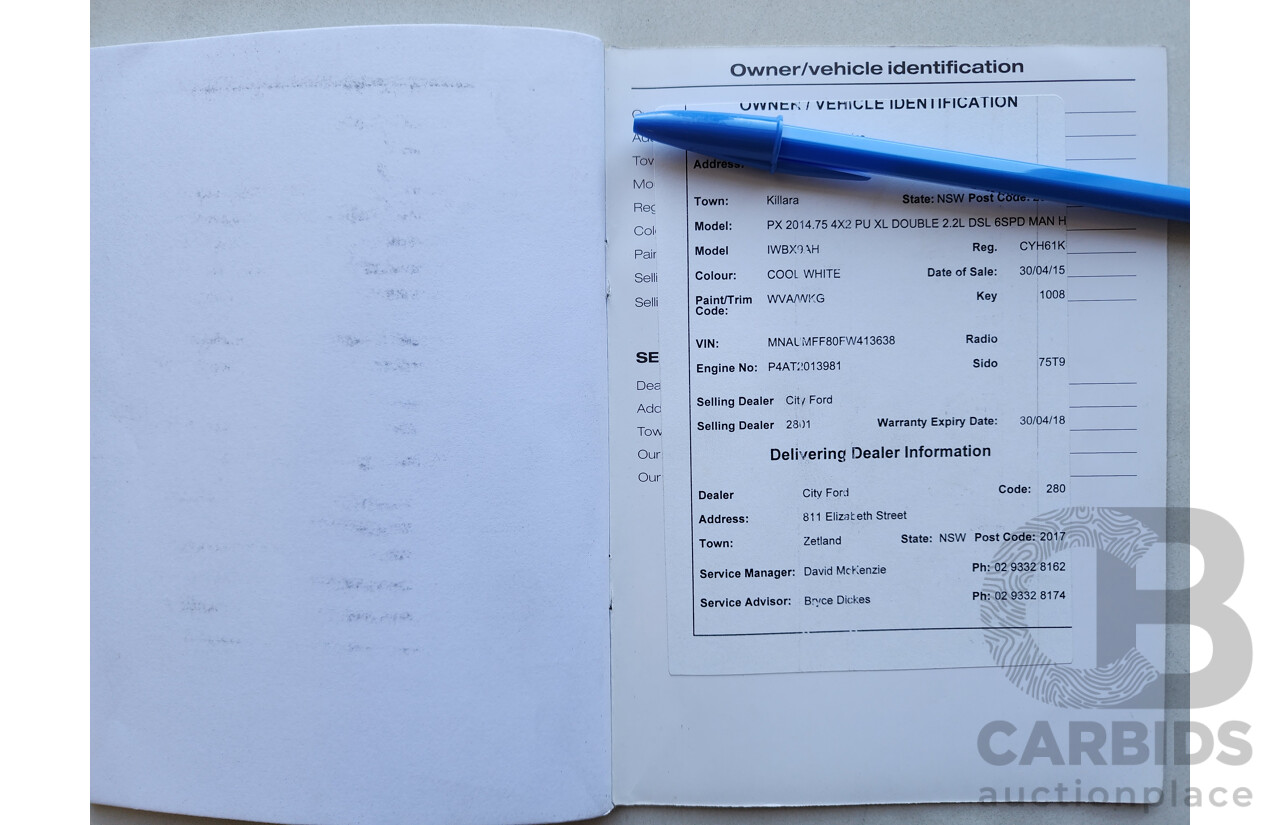 Owner/vehicle identification
OWNER / VEHICLE IDENTIFICATION
Address:
Tov
Town: Killara State: NSW Post Code:
Mo
Model: PX 2014.75 4X2 PU XL DOUBLE 2.2L DSL 6SPD MAN H
Reg
Model IWBX9AH Reg. CYH61K
Col
Colour: COOL WHITE Date of Sale: 30/04/15
Pair
Paint/Trim Code: WVA/WKG Key 1008
Selli
Selli
VIN: MNAUMFF80FW413638 Radio
SE
Engine No: P4AT2013981 Sido 75T9
Dea
Selling Dealer City Ford
Add
Selling Dealer 2801 Warranty Expiry Date: 30/04/18
Tow
Our
Our
Delivering Dealer Information
Dealer City Ford Code: 280
Address: 811 Elizabeth Street
Town: Zetland State: NSW Post Code: 2017
Service Manager: David McKenzie Ph: 02 9332 8162
Service Advisor: Bryce Dickes Ph: 02 9332 8174
CB
CARBIDS
auctionplace